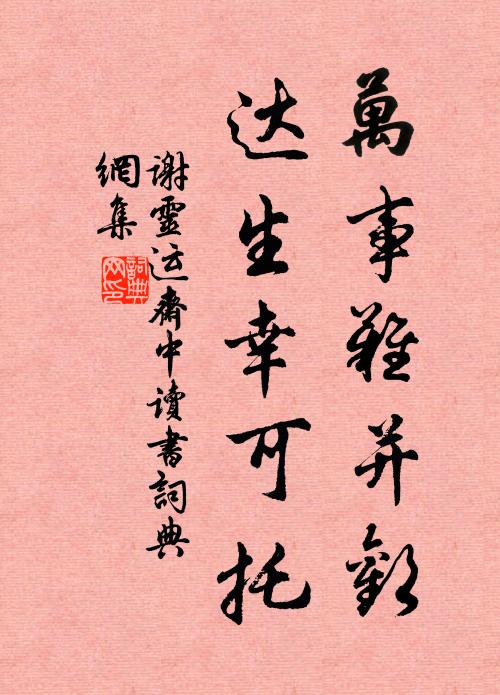 萬事難并歡
达生幸可托
谢靈运齋中讀書詞典
網集
詞典网印